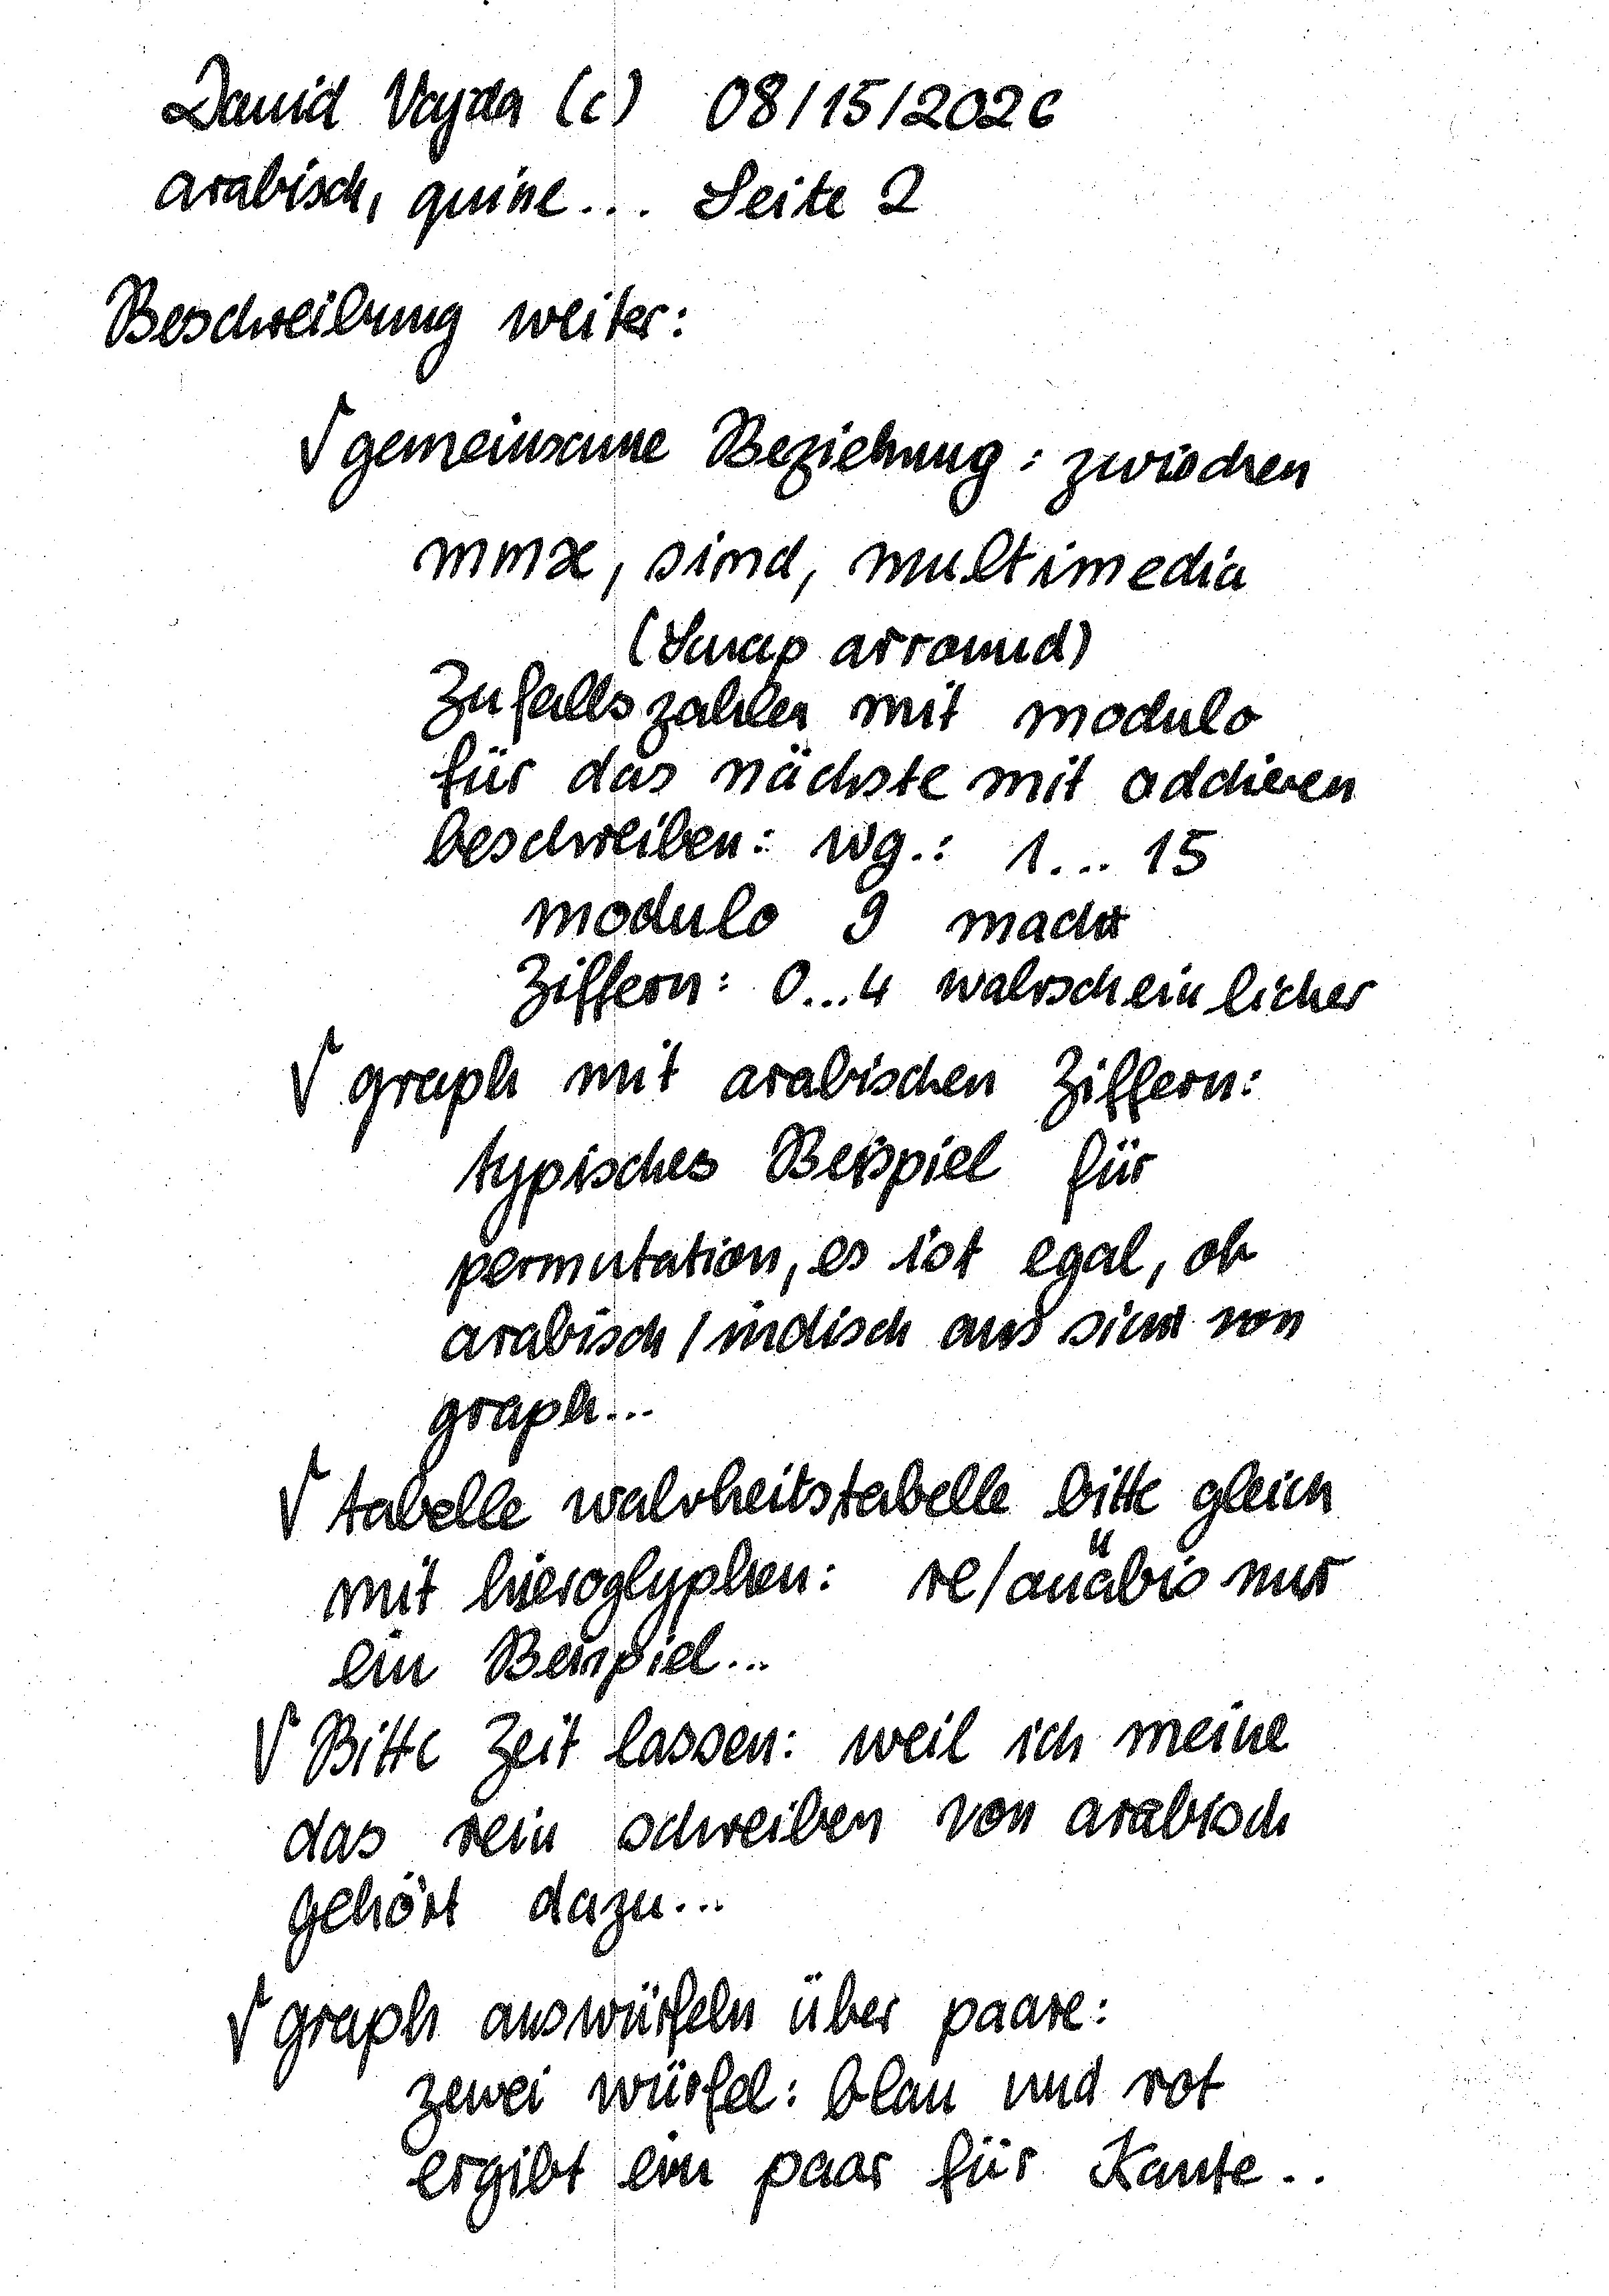 David Vajda (c) 08/15/2026
arabisch, quine... Seite 2
Beschreibung weiter:
√ gemeinsame Beziehung: zwischen
mmx, simd, multimedia
(Swap arround)
Zufallszahlen mit modulo
für das nächste mit addieren
beschreiben: wg.: 1... 15
modulo 9 macht
Ziffern: 0...4 wahrscheinlicher
√ graph mit arabischen Ziffern:
typisches Beispiel für
permutation, es ist egal, ob
arabisch/indisch aus sicht von
graph...
√ tabelle wahrheitstabelle bitte gleich
mit hieroglyphen: re/anübis nur
ein Beispiel...
√ Bitte Zeit lassen: weil ich meine
das rein schreiben von arabisch
gehört dazu...
√ graph auswürfeln über paare:
zwei würfel: blau und rot
ergibt ein paar für Kante..